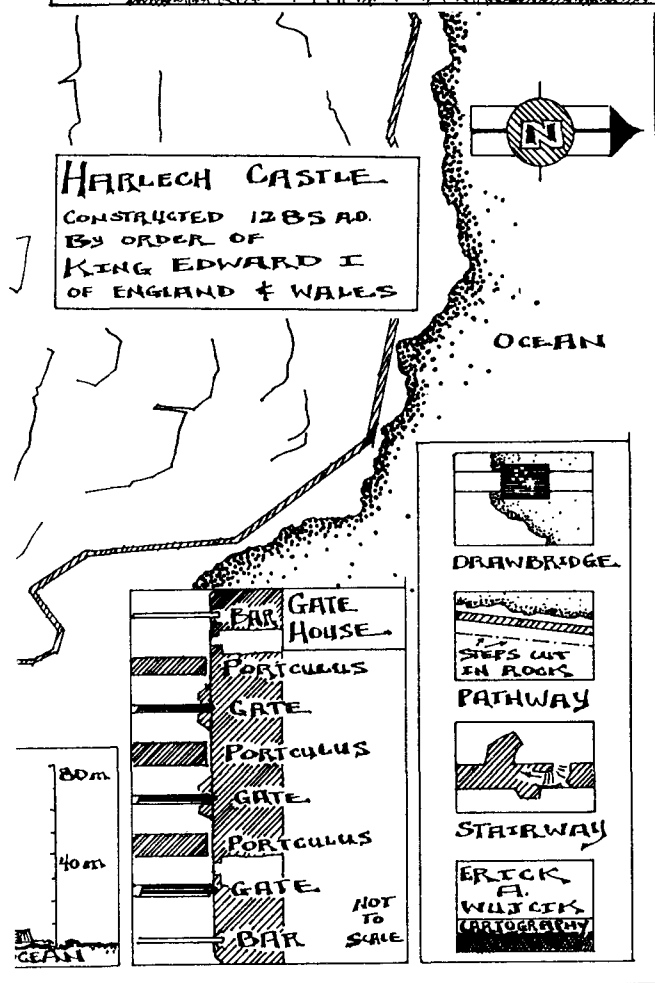 N
HARLECH CASTLE
CONSTRUCTED 1285 AD.
BY ORDER OF
KING EDWARD I
OF ENGLAND & WALES
OCEAN
DRAWBRIDGE
STEPS CUT
IN ROCK
PATHWAY
STAIRWAY
ERICK
A.
WUJCIK
CARTOGRAPHY
BAR
GATE
HOUSE
PORTCULUS
GATE
PORTCULUS
GATE
PORTCULUS
GATE
BAR
NOT
TO
SCALE
80m
40m
CEAN